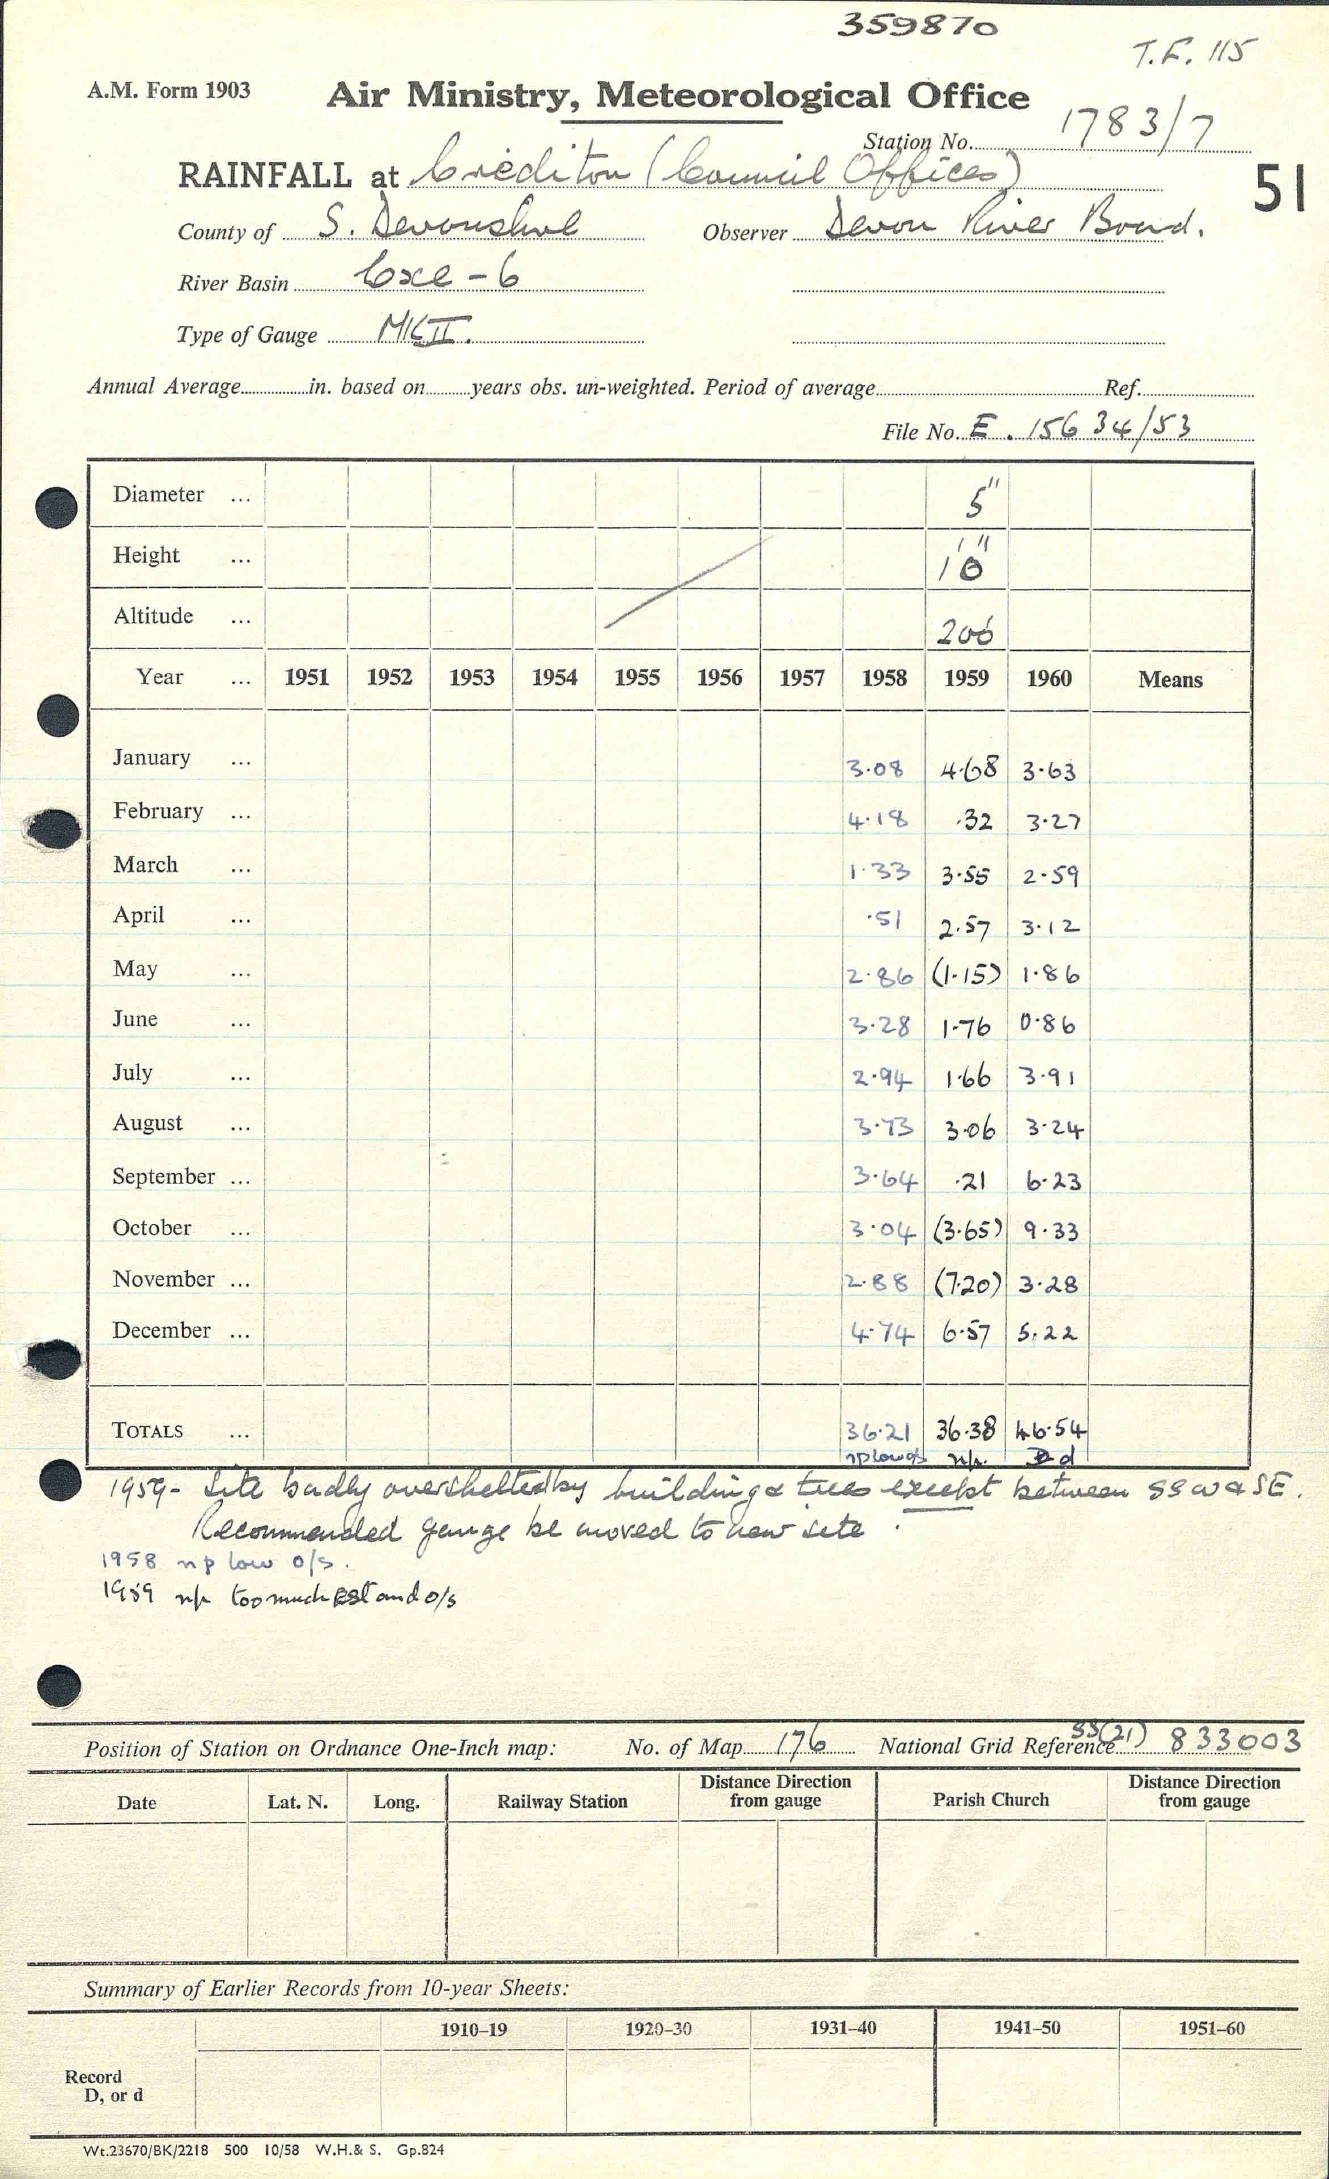 359870
T.F. 115
A.M. Form 1903 Air Ministry, Meteorological Office
Station No. 1783/7
RAINFALL at Crediton (Council Offices)
51
County of S. Devonshire Observer Devon River Board.
River Basin Exe - 6
Type of Gauge MK II.
Annual Average in. based on years obs. un-weighted. Period of average Ref.
File No. E. 15634/53
Diameter ... 5"
Height ... 1' 0"
Altitude ... 200
Year ... 1951 1952 1953 1954 1955 1956 1957 1958 1959 1960 Means
January ... 3.08 4.68 3.63
February ... 4.18 .32 3.27
March ... 1.33 3.55 2.59
April ... .51 2.57 3.12
May ... 2.86 (1.15) 1.86
June ... 3.28 1.76 0.86
July ... 2.94 1.66 3.91
August ... 3.73 3.06 3.24
September ... 3.64 .21 6.23
October ... 3.04 (3.65) 9.33
November ... 2.88 (7.20) 3.28
December ... 4.74 6.57 5.22
TOTALS ... 36.21 36.38 46.54
np low o/s np. d
1959 - Site badly oversheltered by building & trees except between SSW & SE.
Recommended gauge be moved to new site.
1958 np low o/s.
1959 np too much Est and o/s
Position of Station on Ordnance One-Inch map: No. of Map 176 National Grid Reference SS(21) 833003
Date Lat. N. Long. Railway Station Distance Direction from gauge Parish Church Distance Direction from gauge
Summary of Earlier Records from 10-year Sheets:
1910–19 1920–30 1931–40 1941–50 1951–60
Record
D, or d
Wt.23670/BK/2218 500 10/58 W.H.& S. Gp.824